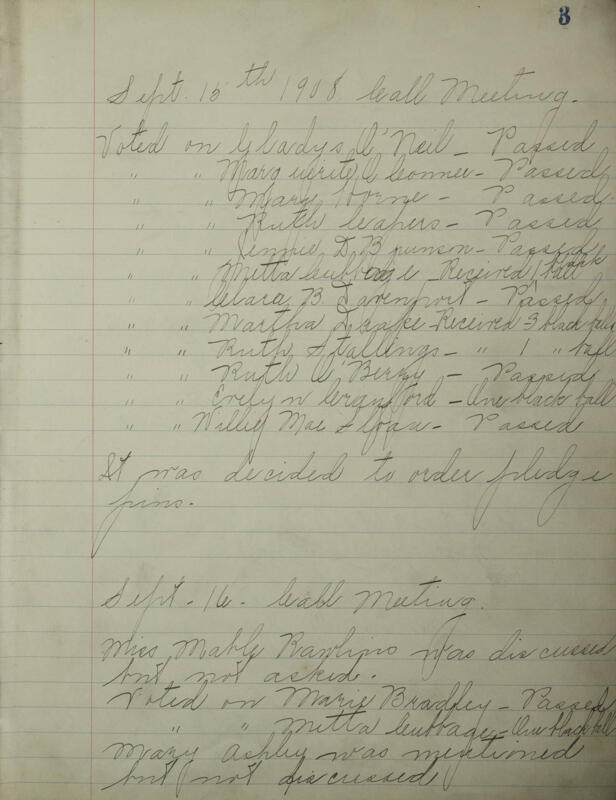 3
Sept. 15th 1908. Call Meeting.
Voted on Gladys O'Neil - Passed
" " Marguerite Conner - Passed
" " Mary Horne - Passed.
" " Ruth Capers - Passed
" " Jennie D. Brunson - Passed
" " Mitta Cubbage - Received 1 black ball
" " Clara B. Davenport - Passed
" " Martha Drake - Received 3 black balls
" " Ruth Stallings - " 1 " ball
" " Ruth O'Berry - Passed
" " Evelyn Crawford - One black ball
" " Willie Mae Sloan - Passed
It was decided to order pledge
pins.
Sept. 16 - Call Meeting.
Miss Mable Rawlins was discussed
but not asked.
Voted on Marie Bradley - Passed
" " Mitta Cubbage - One black ball
Mary Ashley was mentioned
but not discussed